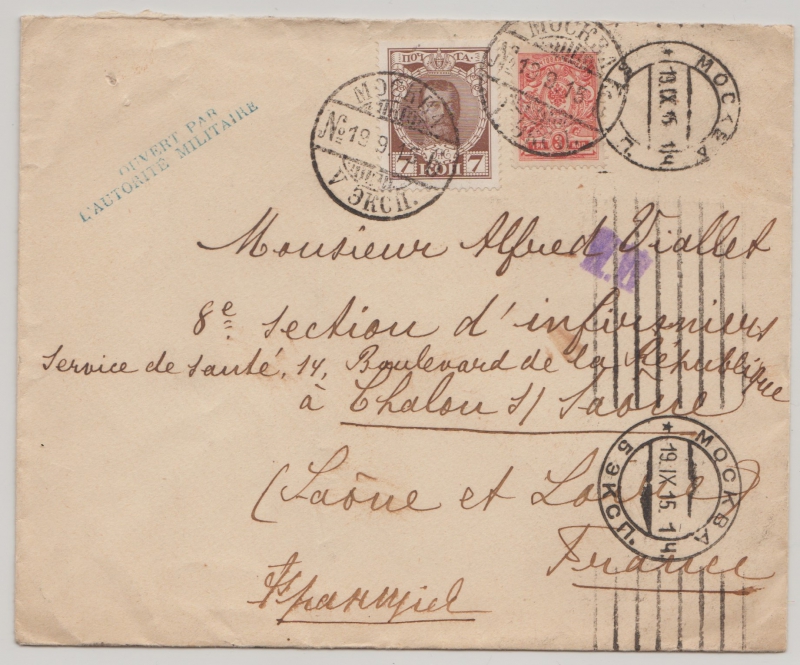 OUVERT PAR
L'AUTORITÉ MILITAIRE
ПОЧТА.
7 КОП 7
3
МОСКВА
№ 19 9
ЭКСП.
МОСКВА
№ 19.9.15
МОСКВА
19.IX.15
Monsieur Alfred Viallet
8e section d'infirmiers
Service de santé, 14, Boulevard de la République
à Chalon s/ Saône
(Saône et Loire)
France
МОСКВА
19.IX.15
5 ЭКСП.